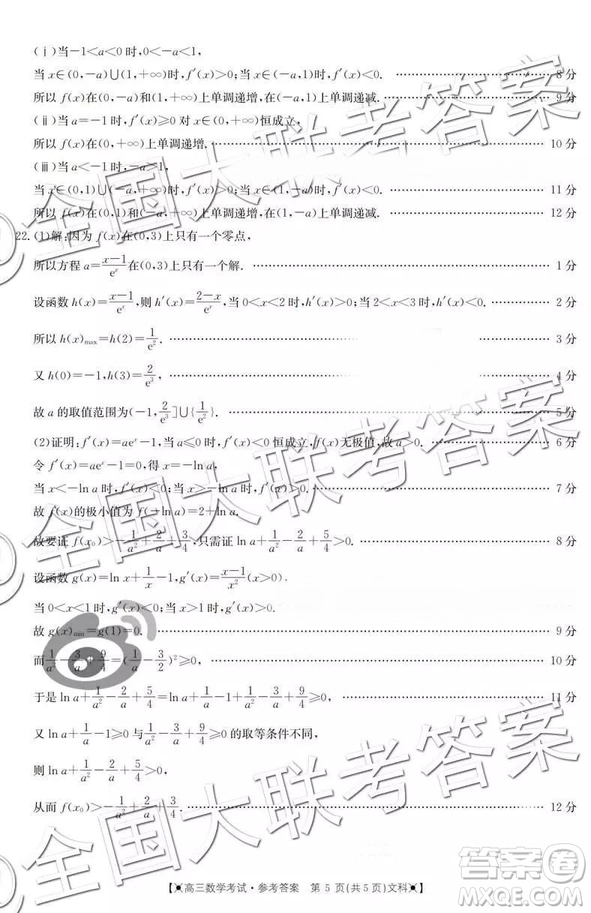 (ⅰ)当-1<a<0时,0<-a<1,
当x∈(0,-a)∪(1,+∞)时,f′(x)>0;当x∈(-a,1)时,f′(x)<0. 8分
所以f(x)在(0,-a)和(1,+∞)上单调递增,在(-a,1)上单调递减. 9分
(ⅱ)当a=-1时,f′(x)≥0对x∈(0,+∞)恒成立,
所以f(x)在(0,+∞)上单调递增. 10分
(ⅲ)当a<-1时,-a>1,
当x∈(0,1)∪(-a,+∞)时,f′(x)>0;当x∈(1,-a)时,f′(x)<0. 11分
所以f(x)在(0,1)和(-a,+∞)上单调递增,在(1,-a)上单调递减. 12分
22.(1)解:因为f(x)在(0,3)上只有一个零点,
所以方程a=(x-1)/eˣ在(0,3)上只有一个解. 1分
设函数h(x)=(x-1)/eˣ,则h′(x)=(2-x)/eˣ,当0<x<2时,h′(x)>0;当2<x<3时,h′(x)<0. 2分
所以h(x)max=h(2)=1/e². 3分
又h(0)=-1,h(3)=2/e³, 4分
故a的取值范围为(-1,2/e³]∪{1/e²}. 5分
(2)证明:f′(x)=aeˣ-1,当a≤0时,f′(x)<0恒成立,f(x)无极值,故a>0. 6分
令f′(x)=aeˣ-1=0,得x=-ln a,
当x<-ln a时,f′(x)<0;当x>-ln a时,f′(x)>0. 7分
故f(x)的极小值为f(-ln a)=2+ln a,
故要证f(x₀)>-1/a²+2/a+3/4,只需证ln a+1/a²-2/a+5/4>0. 8分
设函数g(x)=ln x+1/x-1,g′(x)=(x-1)/x²(x>0).
当0<x<1时,g′(x)<0;当x>1时,g′(x)>0.
故g(x)min=g(1)=0. 9分
而1/a²-3/a+9/4=(1/a-3/2)²≥0, 10分
于是ln a+1/a²-2/a+5/4=ln a+1/a-1+1/a²-3/a+9/4≥0. 11分
又ln a+1/a-1≥0与1/a²-3/a+9/4≥0的取等条件不同,
则ln a+1/a²-2/a+5/4>0,
从而f(x₀)>-1/a²+2/a+3/4. 12分
【高三数学考试·参考答案 第5页(共5页)文科】
全国大联考答案
全国大联考答案
全国大联考答案
答案圈
MXQE.COM